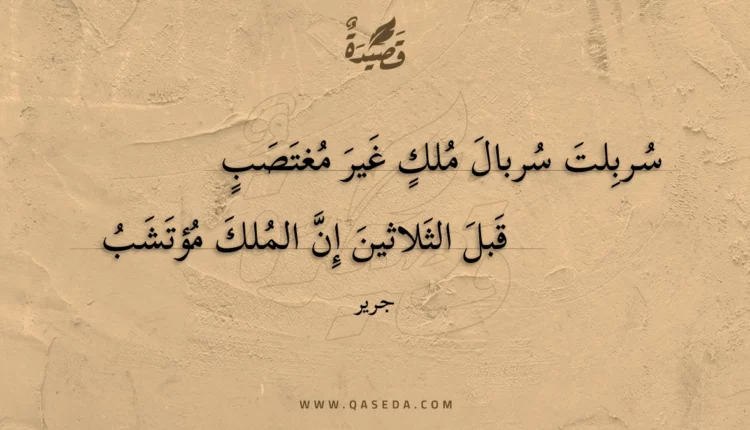 قَصِيدَةٌ
سُربِلتَ سُربالَ مُلكٍ غَيرَ مُغتَصَبٍ
قَبلَ الثَلاثينَ إِنَّ المُلكَ مُؤتَشَبُ
جرير
WWW.QASEDA.COM